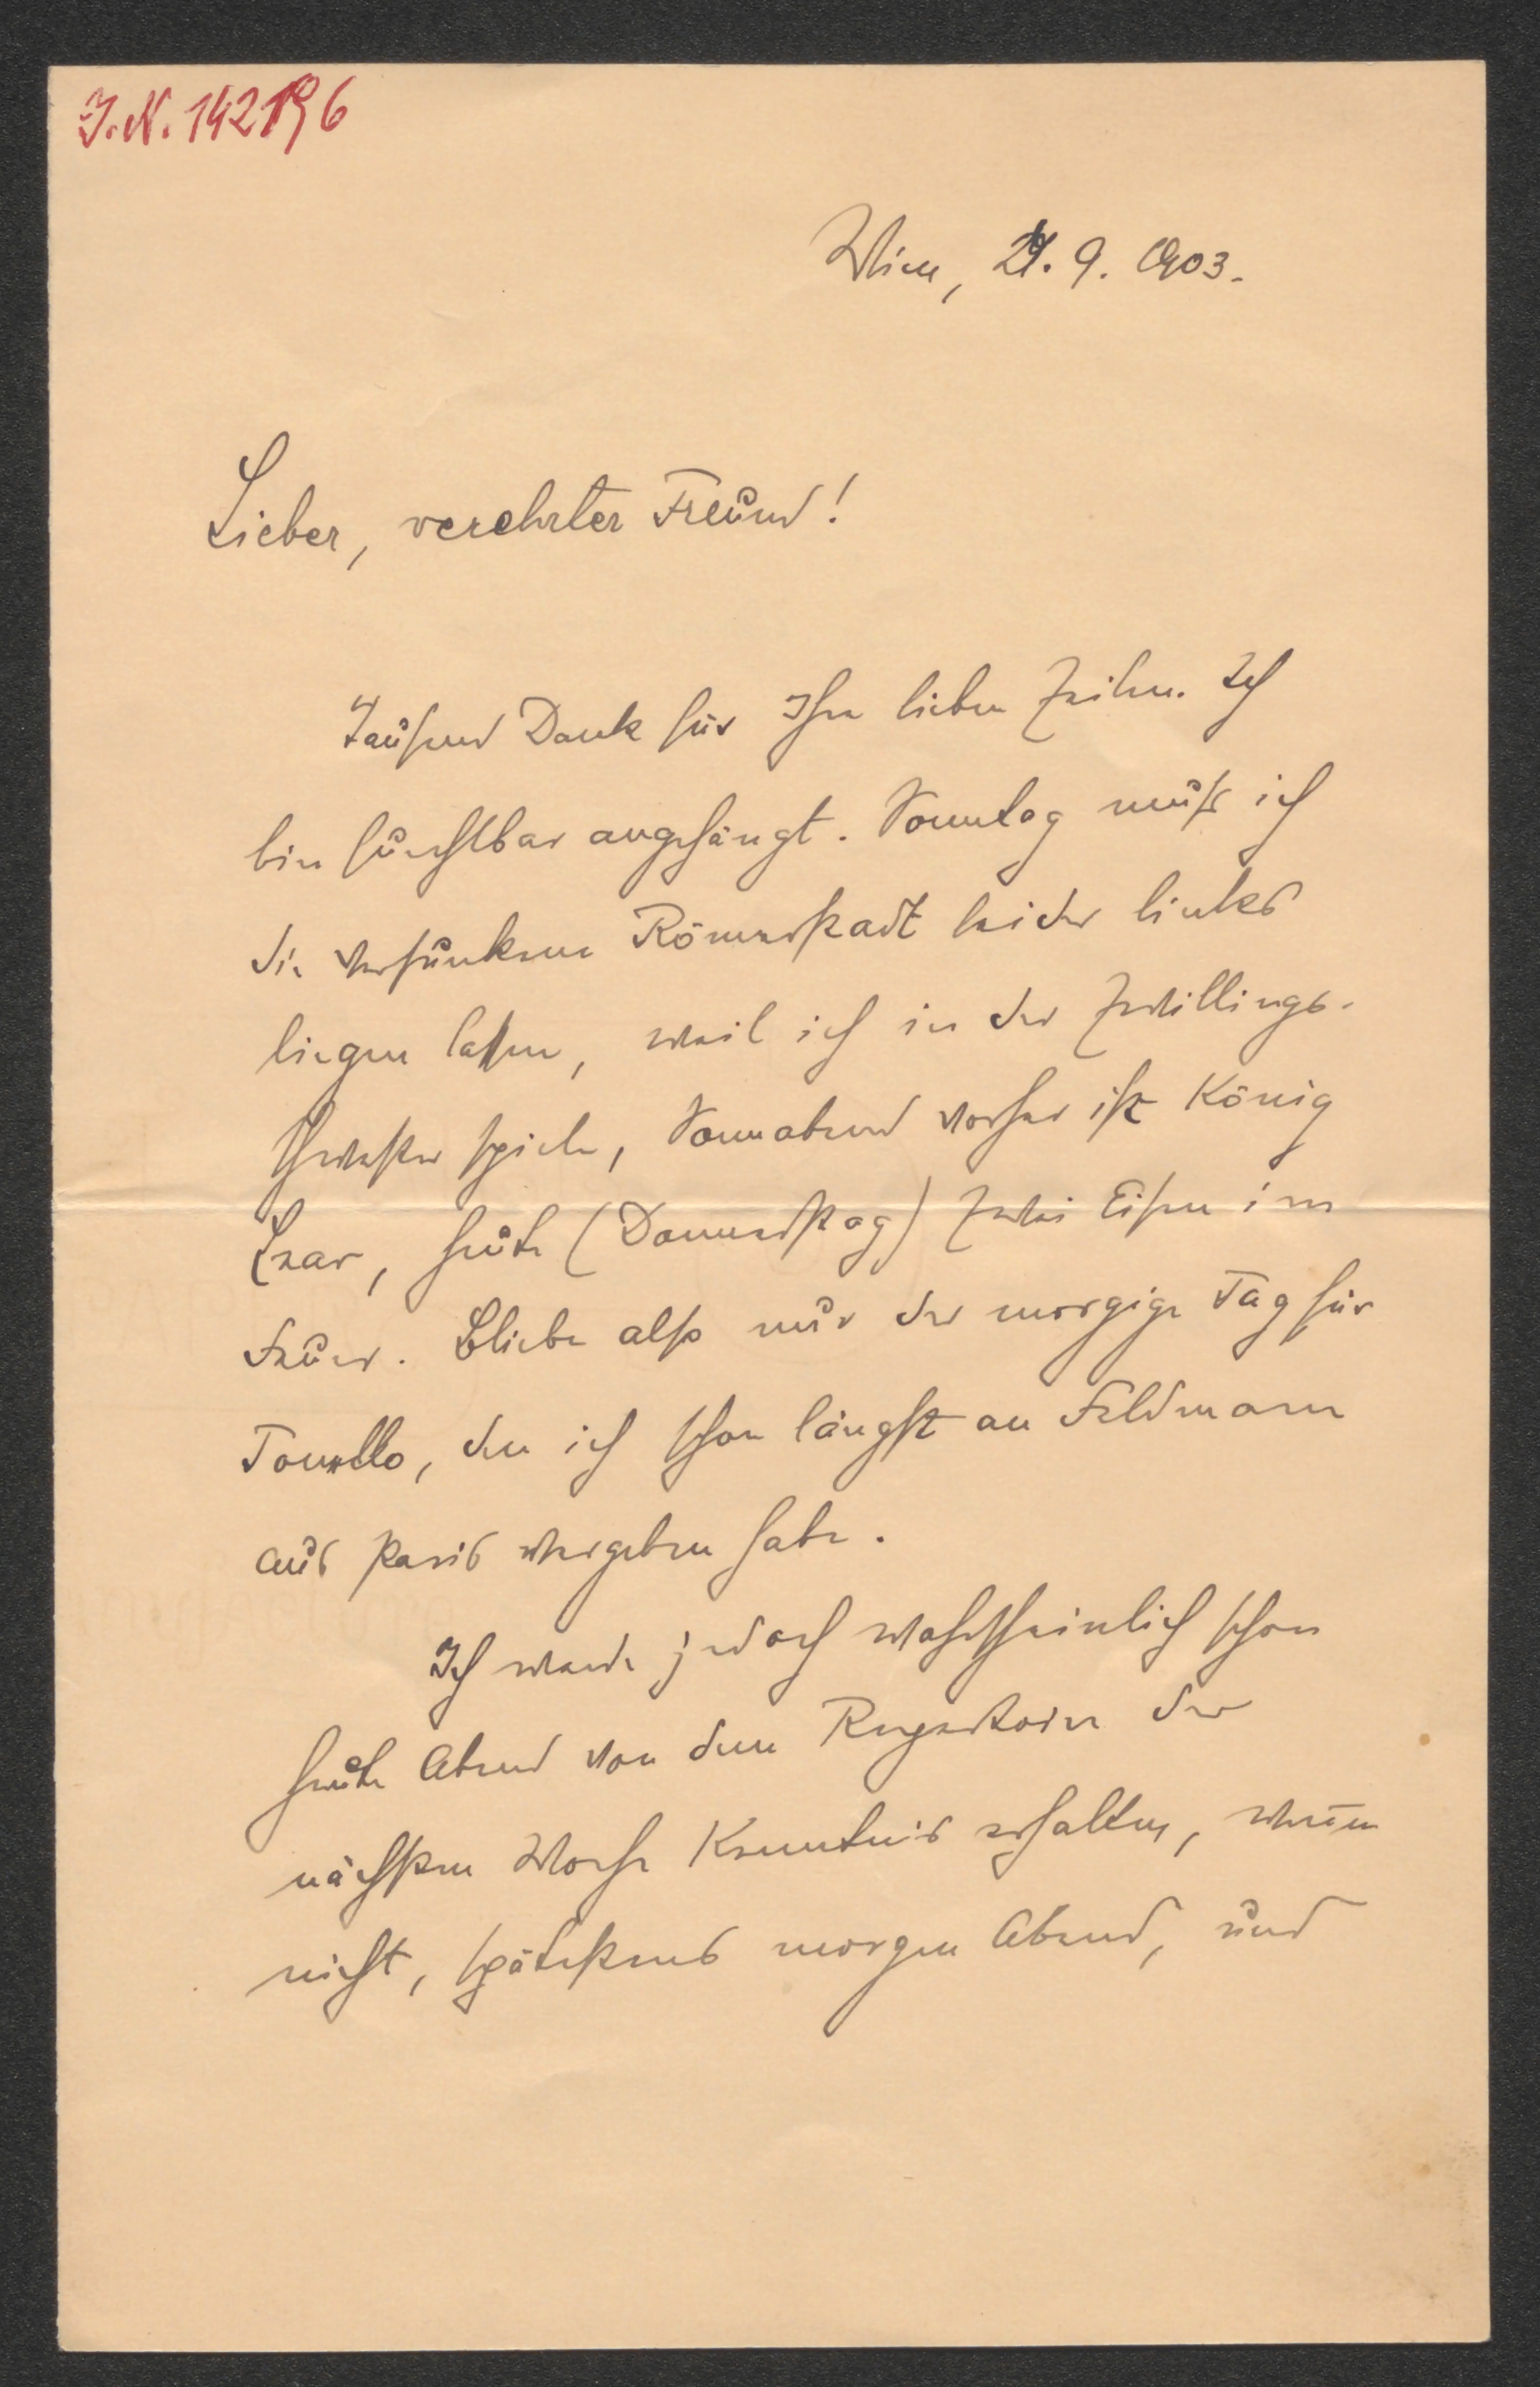 I. N. 142196
Wien, 24. 9. 1903.
Lieber, verehrter Freund!
Tausend Dank für Ihre lieben Zeilen. Ich
bin furchtbar angehängt. Sonntag muß ich
die versunkene Römerstadt leider links
liegen lassen, weil ich in der Zwillings-
schwester spiele, Sonnabend vorher ist König
Lear, heute (Donnerstag) Zwei Eisen im
Feuer. Bliebe also nur der morgige Tag für
den ich schon längst an Feldmann
aus Paris vergeben habe.
Ich werde jedoch wahrscheinlich schon
heute Abend von dem Repertoire der
nächsten Woche Kenntnis erhalten, wen̄
nicht, spätestens morgen Abend, und